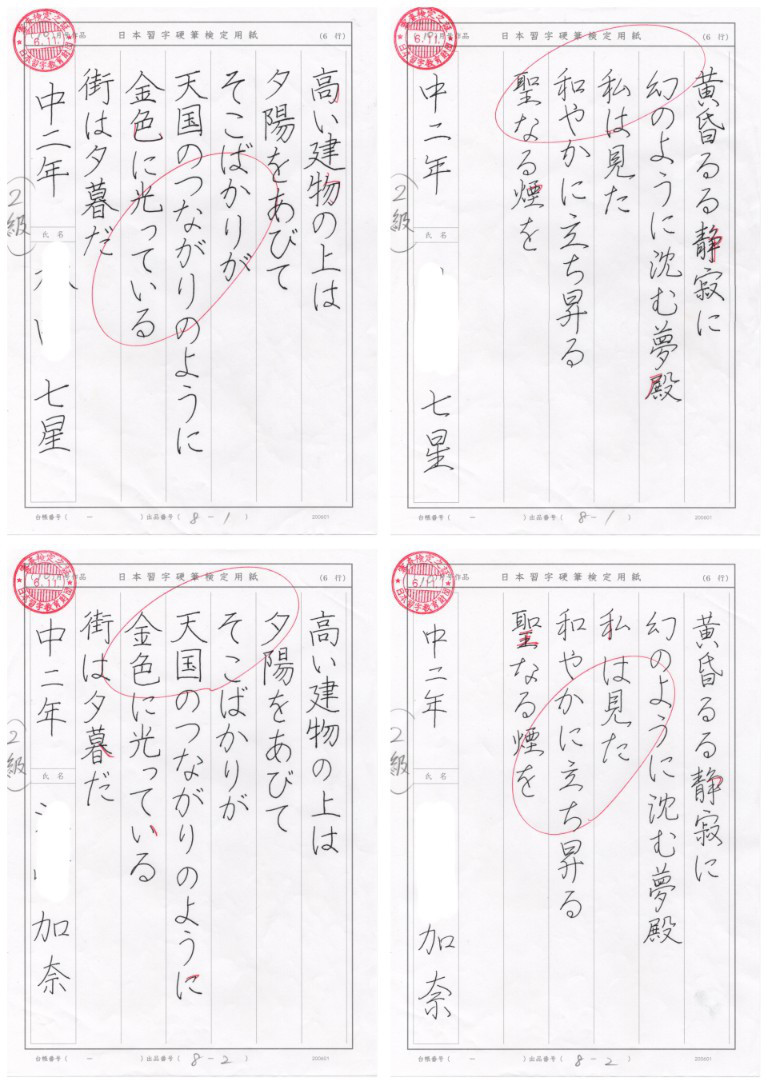 日本習字硬筆検定用紙
(6 行)
高い建物の上は
夕陽をあびて
そこばかりが
天国のつながりのように
金色に光っている
街は夕暮だ
中二年
2級
氏名
七星
台帳番号( - )出品番号( 8-1 )
200601
日本習字硬筆検定用紙
(6 行)
黄昏るる静寂に
幻のように沈む夢殿
私は見た
和やかに立ち昇る
聖なる煙を
中二年
2級
氏名
七星
台帳番号( - )出品番号( 8-1 )
200601
日本習字硬筆検定用紙
(6 行)
高い建物の上は
夕陽をあびて
そこばかりが
天国のつながりのように
金色に光っている
街は夕暮だ
中二年
2級
氏名
加奈
台帳番号( - )出品番号( 8-2 )
200601
日本習字硬筆検定用紙
(6 行)
黄昏るる静寂に
幻のように沈む夢殿
私は見た
和やかに立ち昇る
聖なる煙を
中二年
2級
氏名
加奈
台帳番号( - )出品番号( 8-2 )
200601